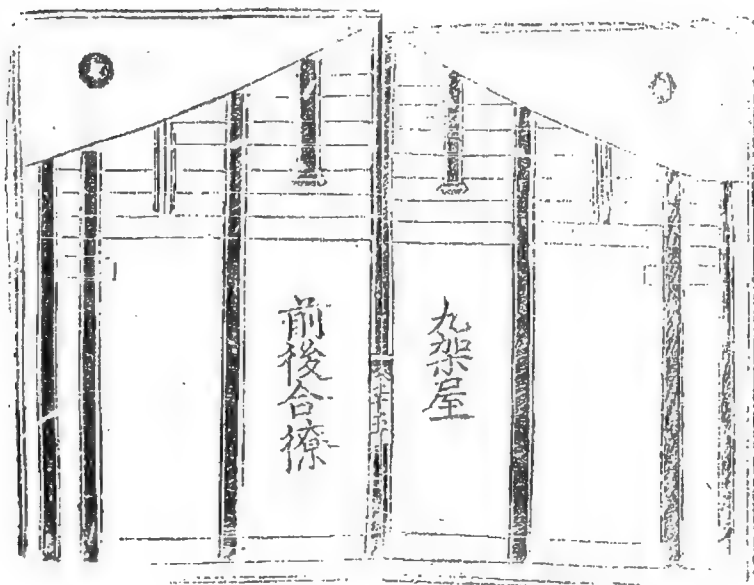 九架屋
前後合撩